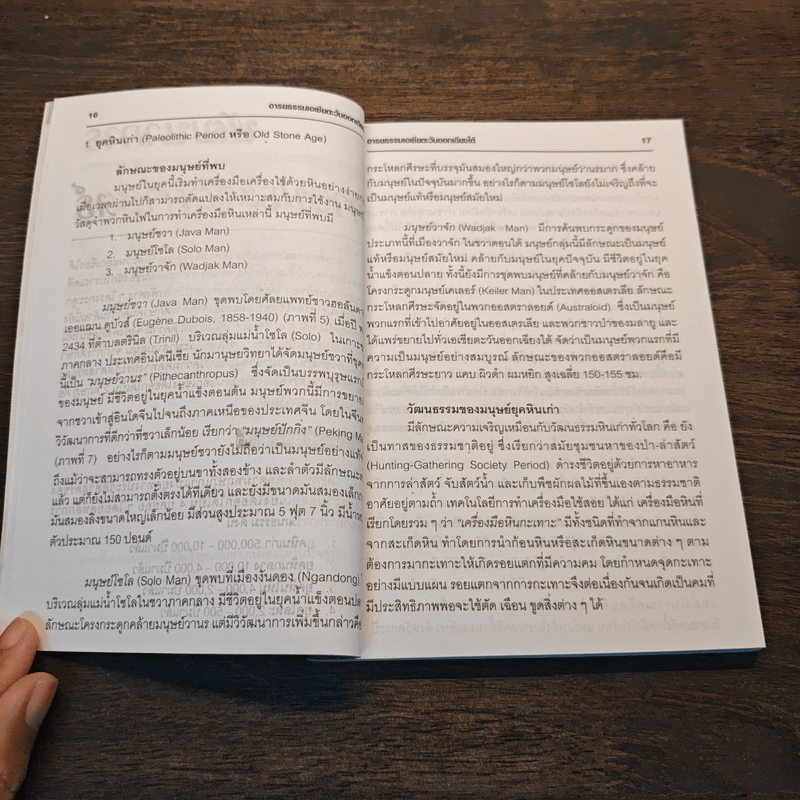 16
อารยธรรมเอเชียตะวันออกเฉียง
1. ยุคหินเก่า (Paleolithic Period หรือ Old Stone Age)
ลักษณะของมนุษย์ที่พบ
มนุษย์ในยุคนี้เริ่มทำเครื่องมือเครื่องใช้ด้วยหินอย่างง่าย
เมื่อเวลาผ่านไปก็สามารถดัดแปลงให้เหมาะสมกับการใช้งาน
วัสดุจำพวกหินไฟในการทำเครื่องมือหินเหล่านี้ มนุษย์ที่พบมี
1. มนุษย์ชวา (Java Man)
2. มนุษย์โซโล (Solo Man)
3. มนุษย์วาจัก (Wadjak Man)
มนุษย์ชวา (Java Man) ขุดพบโดยศัลยแพทย์ชาวฮอลันดา
เออแฌน ดูบัวส์ (Eugène Dubois, 1858-1940) (ภาพที่ 5) เมื่อปี
2434 ที่ตำบลตรินิล (Trinil) บริเวณลุ่มแม่น้ำโซโล (Solo) ในเกาะ
ภาคกลาง ประเทศอินโดนีเซีย นักมานุษยวิทยาได้จัดมนุษย์ชวาที่
นี้เป็น “มนุษย์วานร” (Pithecanthropus) ซึ่งจัดเป็นบรรพบุรุษ
ของมนุษย์ มีชีวิตอยู่ในยุคน้ำแข็งตอนต้น มนุษย์พวกนี้มีการ
จากชวาเข้าสู่อินโดจีนไปจนถึงภาคเหนือของประเทศจีน โดยในจีน
วิวัฒนาการที่ดีกว่าที่ชวาเล็กน้อย เรียกว่า “มนุษย์ปักกิ่ง” (Peking
(ภาพที่ 7) อย่างไรก็ตามมนุษย์ชวายังไม่ถือว่าเป็นมนุษย์อย่าง
ถึงแม้ว่าจะสามารถทรงตัวอยู่บนขาทั้งสองข้าง และลำตัวมีลักษณะ
แล้ว แต่ก็ยังไม่สามารถตั้งตรงได้ทีเดียว และยังมีขนาดมันสมองเล็ก
มันสมองลิงขนาดใหญ่เล็กน้อย มีส่วนสูงประมาณ 5 ฟุต 7 นิ้ว
ตัวประมาณ 150 ปอนด์
มนุษย์โซโล (Solo Man) ขุดพบที่เมืองงันดอง (Ngandong)
บริเวณลุ่มแม่น้ำโซโลในชวาภาคกลาง มีชีวิตอยู่ในยุคน้ำแข็งตอน
ลักษณะโครงกระดูกคล้ายมนุษย์วานร แต่มีวิวัฒนาการเพิ่มขึ้นกล่าวคือ
อารยธรรมเอเชียตะวันออกเฉียงใต้
17
กระโหลกศีรษะที่บรรจุมันสมองใหญ่กว่าพวกมนุษย์วานรมาก ซึ่งคล้าย
กับมนุษย์ในปัจจุบันมากขึ้น อย่างไรก็ตามมนุษย์โซโลยังไม่เจริญถึงที่จะ
เป็นมนุษย์แท้หรือมนุษย์สมัยใหม่
มนุษย์วาจัก (Wadjak Man) มีการค้นพบกระดูกของมนุษย์
ประเภทนี้ที่เมืองวาจัก ในชวาตอนใต้ มนุษย์กลุ่มนี้มีลักษณะเป็นมนุษย์
แท้หรือมนุษย์สมัยใหม่ คล้ายกับมนุษย์ในยุคปัจจุบัน มีชีวิตอยู่ในยุค
น้ำแข็งตอนปลาย ทั้งนี้ยังมีการขุดพบมนุษย์ที่คล้ายกับมนุษย์วาจัก คือ
โครงกระดูกมนุษย์เคลเลอร์ (Keiler Man) ในประเทศออสเตรเลีย ลักษณะ
กระโหลกศีรษะจัดอยู่ในพวกออสตราลอยด์ (Australoid) ซึ่งเป็นมนุษย์
พวกแรกที่เข้าไปอาศัยอยู่ในออสเตรเลีย และพวกชาวป่าของมลายู และ
ได้แพร่ขยายไปทั่วเอเชียตะวันออกเฉียงใต้ จัดว่าเป็นมนุษย์พวกแรกที่มี
ความเป็นมนุษย์อย่างสมบูรณ์ ลักษณะของพวกออสตราลอยด์คือมี
กระโหลกศีรษะยาว แคบ ผิวดำ ผมหยิก สูงเฉลี่ย 150-155 ซม.
วัฒนธรรมของมนุษย์ยุคหินเก่า
มีลักษณะความเจริญเหมือนกับวัฒนธรรมหินเก่าทั่วโลก คือ ยัง
เป็นทาสของธรรมชาติอยู่ ซึ่งเรียกว่าสมัยชุมชนหาของป่า-ล่าสัตว์
(Hunting-Gathering Society Period) ดำรงชีวิตอยู่ด้วยการหาอาหาร
จากการล่าสัตว์ จับสัตว์น้ำ และเก็บพืชผักผลไม้ที่ขึ้นเองตามธรรมชาติ
อาศัยอยู่ตามถ้ำ เทคโนโลยีการทำเครื่องมือใช้สอย ได้แก่ เครื่องมือหินที่
เรียกโดยรวม ๆ ว่า “เครื่องมือหินกะเทาะ” มีทั้งชนิดที่ทำจากแกนหินและ
จากสะเก็ดหิน ทำโดยการนำก้อนหินหรือสะเก็ดหินขนาดต่าง ๆ ตาม
ต้องการมากะเทาะให้เกิดรอยแตกที่มีความคม โดยกำหนดจุดกะเทาะ
อย่างมีแบบแผน รอยแตกจากการกะเทาะจึงต่อเนื่องกันจนเกิดเป็นคมที่
มีประสิทธิภาพพอจะใช้ตัด เฉือน ขูดสิ่งต่าง ๆ ได้